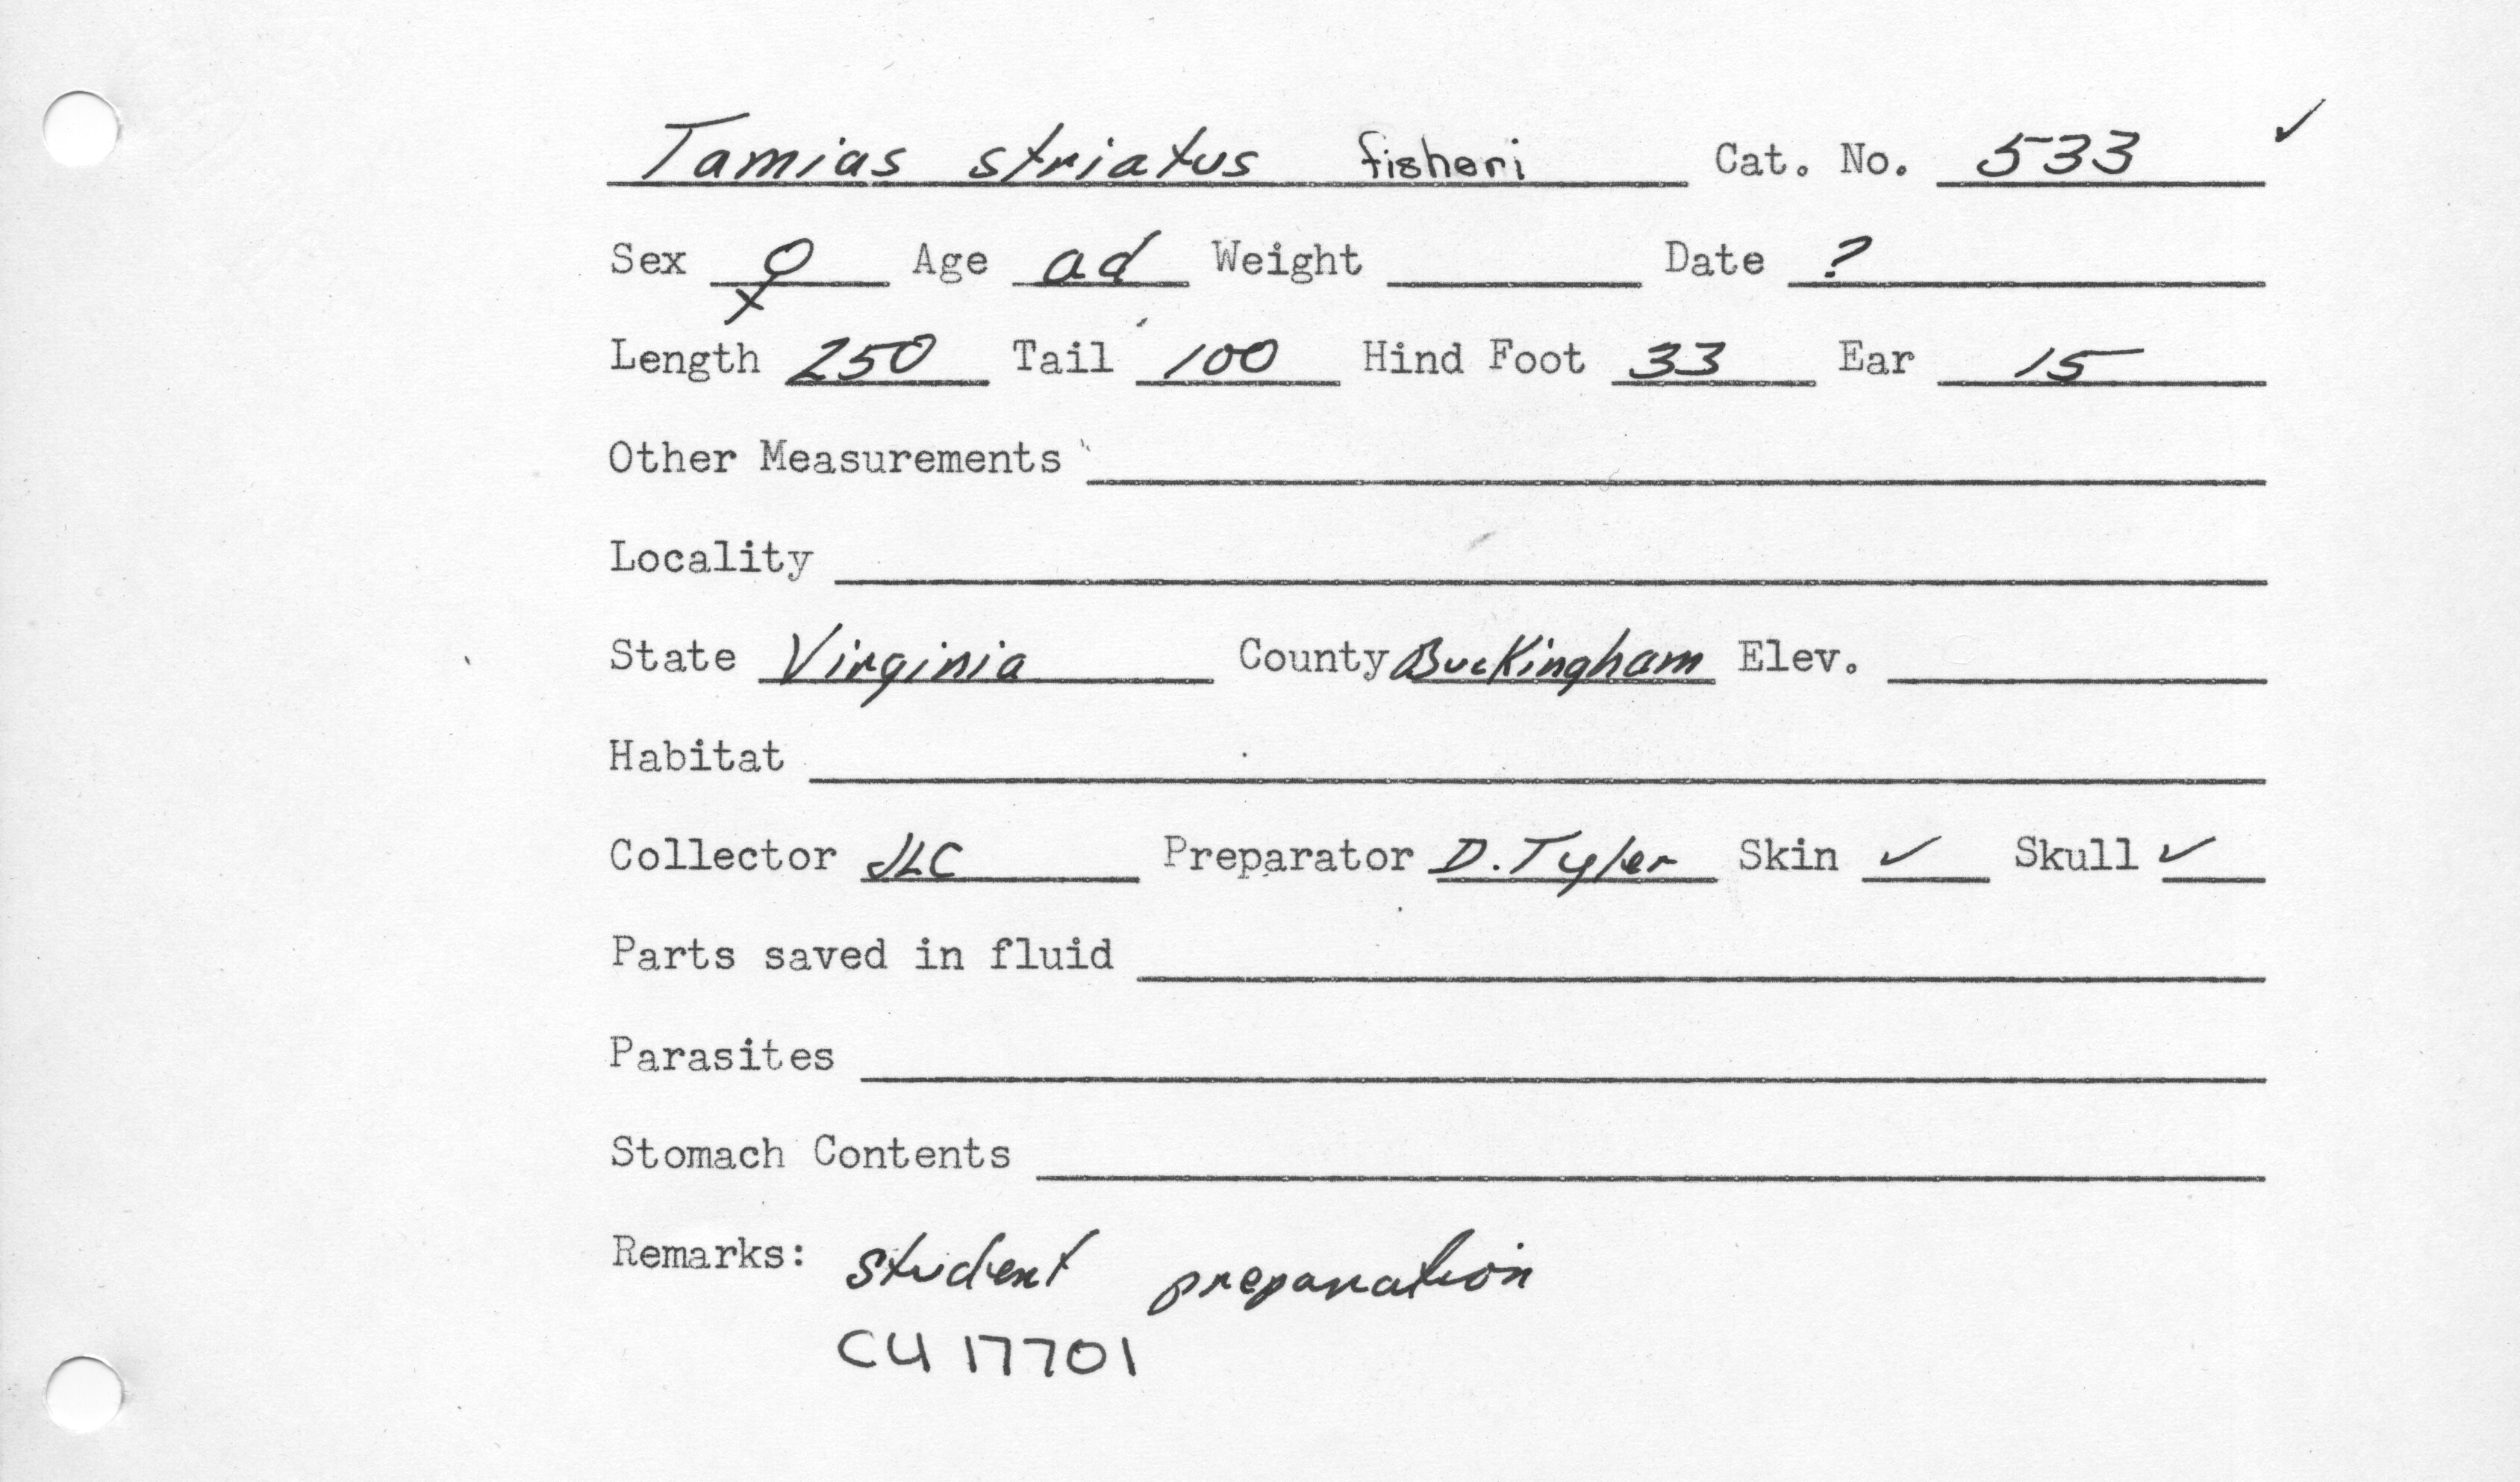 Tamias striatus fisheri Cat. No. 533 ✓
Sex ♀ Age ad Weight Date ?
Length 250 Tail 100 Hind Foot 33 Ear 15
Other Measurements
Locality
State Virginia County Buckingham Elev.
Habitat
Collector JLC Preparator D. Tyler Skin ✓ Skull ✓
Parts saved in fluid
Parasites
Stomach Contents
Remarks: student preparation
CU 17701